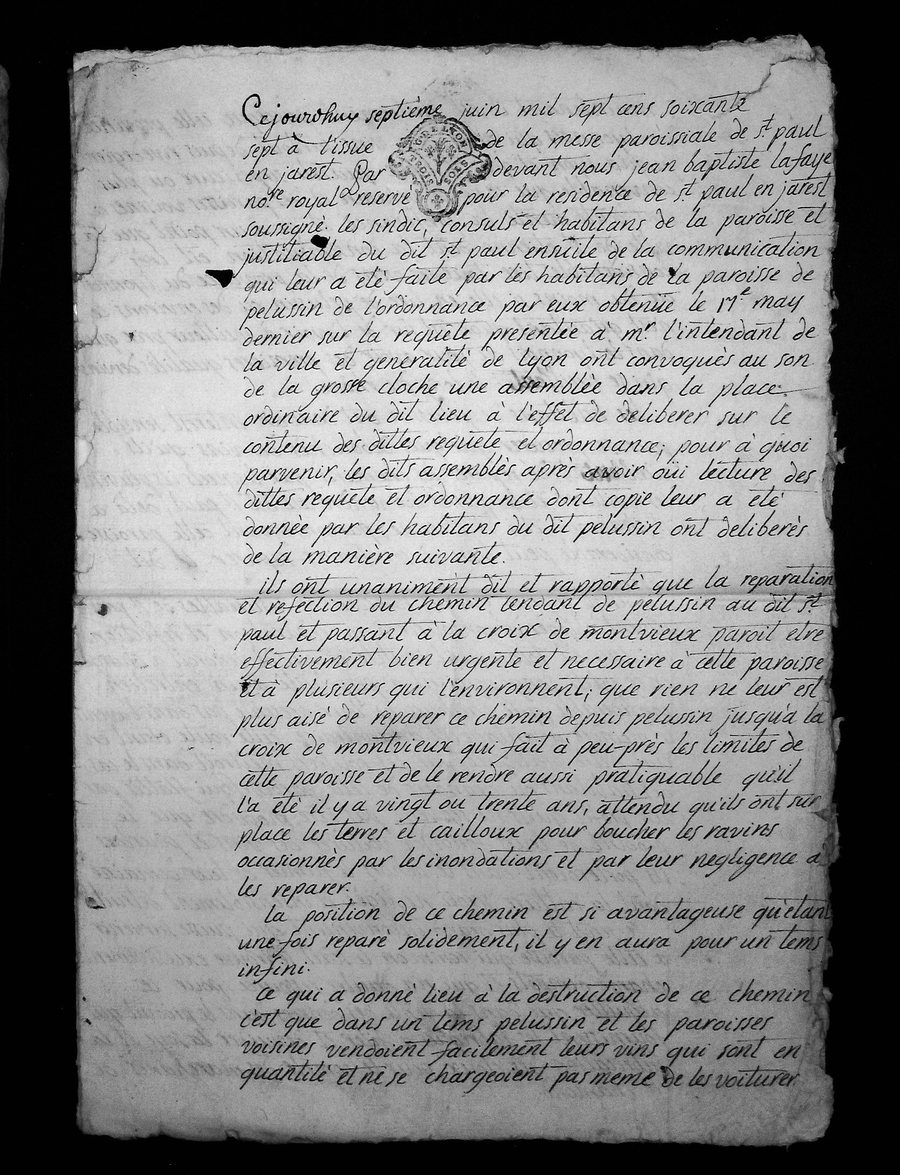 Cejourdhuy septième juin mil sept cens soixante
sept à l'issue de la messe paroissiale de st. paul
en jarest. Par devant nous jean baptiste lafaye
nore. royal reservé pour la residence de st. paul en jarest
soussigné. les sindic, consuls et habitans de la paroisse et
justitiable du dit st. paul ensuite de la communication
qui leur a été faite par les habitans de la paroisse de
pelussin de l'ordonnance par eux obtenüe le 17e. may
dernier sur la requete presentée a mr. l'intendant de
la ville et generalité de Lyon ont convoqués au son
de la grosse cloche une assemblée dans la place
ordinaire du dit lieu a l'effet de deliberer sur le
contenu des dittes requete et ordonnance; pour à quoi
parvenir, les dits assemblés après avoir oüi lecture des
dittes requete et ordonnance dont copie leur a été
donnée par les habitans du dit pelussin ont deliberés
de la manière suivante.
ils ont unaniment dit et rapporté que la reparation
et refection du chemin tendant de pelussin au dit st.
paul et passant à la croix de montvieux paroit etre
effectivement bien urgente et necessaire à cette paroisse
et à plusieurs qui l'environnent; que rien ne leur est
plus aisé de reparer ce chemin depuis pelussin jusqu'a la
croix de montvieux qui fait à peu-près les limites de
cette paroisse et de le rendre aussi pratiquable qu'il
l'a été il y a vingt ou trente ans, attendu qu'ils ont sur
place les terres et cailloux pour boucher les ravins
occasionnés par les inondations et par leur negligence a
les reparer.
la position de ce chemin est si avantageuse qu'etant
une fois reparé solidement, il y en aura pour un tems
infini.
ce qui a donné lieu à la destruction de ce chemin
c'est que dans un tems pelussin et les paroisses
voisines vendoient facilement leurs vins qui sont en
quantité et ne se chargeoient pas meme de les voiturer
G. DE LYON
TROIS SOLS